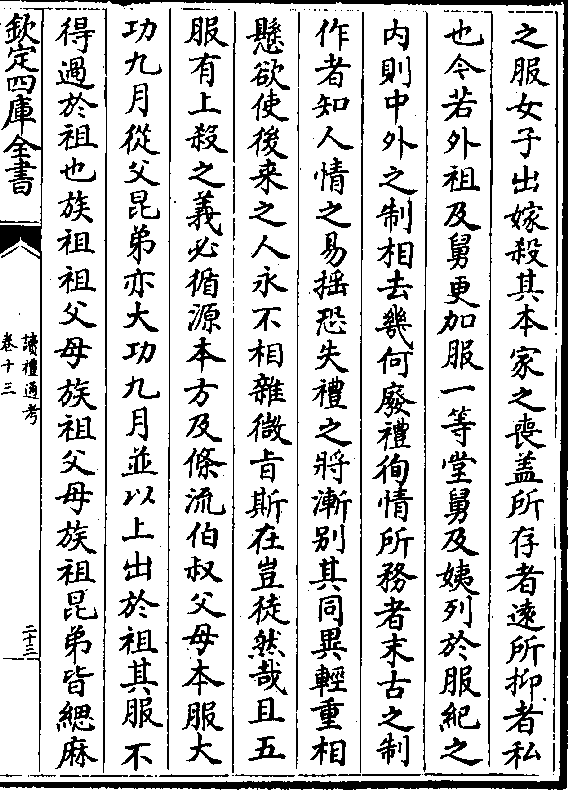 之服女子出嫁殺其本家之喪盖所存者逺所抑者私
也今若外祖及舅更加服一等堂舅及姨列於服紀之
内則中外之制相去幾何廢禮徇情所務者末古之制
作者知人情之易揺恐失禮之將漸别其同異輕重相
懸欲使後来之人永不相雜微㫖斯在豈徒然哉且五
服有上殺之義必循源本方及條流伯叔父母本服大
功九月從父昆弟亦大功九月並以上出於祖其服不
得過於祖也族祖祖父母族祖父母族祖昆弟皆緦麻
欽定四庫全書
讀禮通考
卷十三
二十三